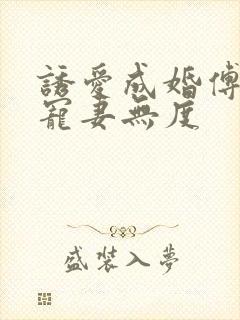 誘愛成婚傅
寵妻無度
盛裝入夢